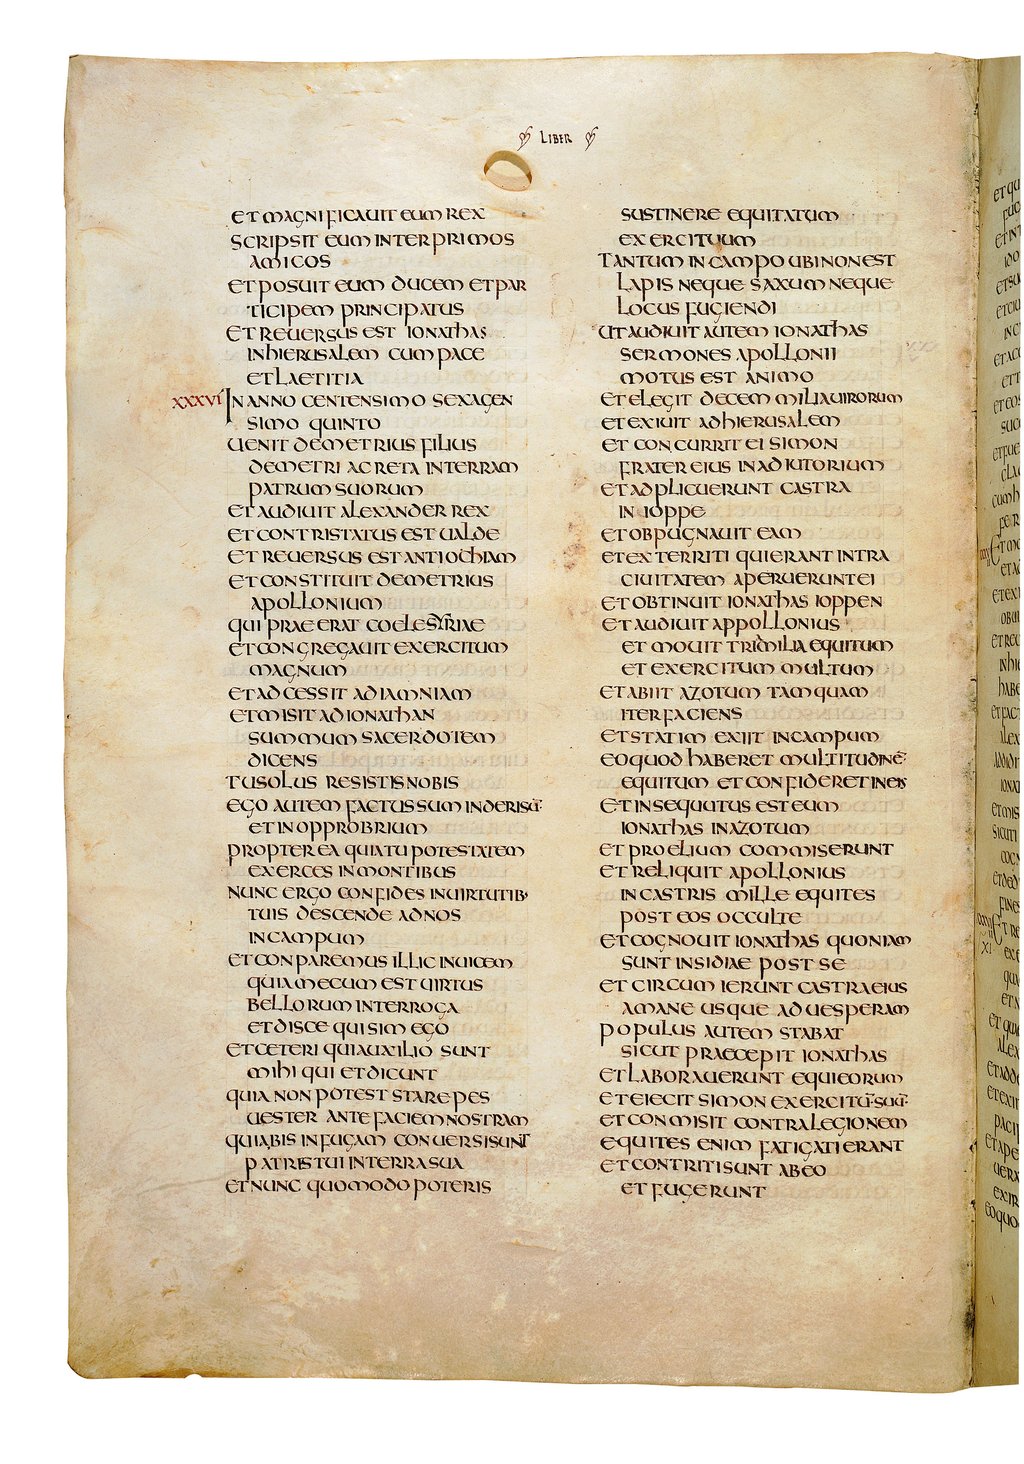 LIBER
ET MAGNIFICAUIT EUM REX
SCRIPSIT EUM INTER PRIMOS
AMICOS
ET POSUIT EUM DUCEM ET PAR
TICIPEM PRINCIPATUS
ET REUERSUS EST IONATHAS
IN HIERUSALEM CUM PACE
ET LAETITIA
XXXVI IN ANNO CENTENSIMO SEXAGEN
SIMO QUINTO
UENIT DEMETRIUS FILIUS
DEMETRI AC RETA IN TERRAM
PATRUM SUORUM
ET AUDIUIT ALEXANDER REX
ET CONTRISTATUS EST UALDE
ET REUERSUS EST ANTIOCHIAM
ET CONSTITUIT DEMETRIUS
APOLLONIUM
QUI PRAEERAT COELESYRIAE
ET CONGREGAUIT EXERCITUM
MAGNUM
ET ADCESSIT AD IAMNIAM
ET MISIT AD IONATHAN
SUMMUM SACERDOTEM
DICENS
TU SOLUS RESISTIS NOBIS
EGO AUTEM FACTUS SUM IN DERISŪ
ET IN OPPROBRIUM
PROPTEREA QUIA TU POTESTATEM
EXERCES IN MONTIBUS
NUNC ERGO CONFIDES IN UIRTUTIB·
TUIS DESCENDE AD NOS
IN CAMPUM
ET CONPAREMUS ILLIC INUICEM
QUIA MECUM EST UIRTUS
BELLORUM INTERROGA
ET DISCE QUI SIM EGO
ET CETERI QUI AUXILIO SUNT
MIHI QUI ET DICUNT
QUIA NON POTEST STARE PES
UESTER ANTE FACIEM NOSTRAM
QUIA BIS IN FUGAM CONUERSI SUNT
PATRES TUI IN TERRA SUA
ET NUNC QUOMODO POTERIS
SUSTINERE EQUITATUM
EXERCITUUM
TANTUM IN CAMPO UBI NON EST
LAPIS NEQUE SAXUM NEQUE
LOCUS FUGIENDI
UT AUDIUIT AUTEM IONATHAS
SERMONES APOLLONII
MOTUS EST ANIMO
ET ELEGIT DECEM MILIA UIRORUM
ET EXIUIT AD HIERUSALEM
ET CONCURRIT EI SIMON
FRATER EIUS IN ADIUTORIUM
ET ADPLICUERUNT CASTRA
IN IOPPE
ET OBPUGNAUIT EAM
ET EXTERRITI QUI ERANT INTRA
CIUITATEM APERUERUNT EI
ET OBTINUIT IONATHAS IOPPEN
ET AUDIUIT APPOLLONIUS
ET MOUIT TRIA MILIA EQUITUM
ET EXERCITUM MULTUM
ET ABIIT AZOTUM TAMQUAM
ITER FACIENS
ET STATIM EXIIT IN CAMPUM
EO QUOD HABERET MULTITUDINĒ
EQUITUM ET CONFIDERET IN EIS
ET INSEQUUTUS EST EUM
IONATHAS IN AZOTUM
ET PROELIUM COMMISERUNT
ET RELIQUIT APOLLONIUS
IN CASTRIS MILLE EQUITES
POST EOS OCCULTE
ET COGNOUIT IONATHAS QUONIAM
SUNT INSIDIAE POST SE
ET CIRCUMIERUNT CASTRA EIUS
A MANE USQUE AD UESPERAM
POPULUS AUTEM STABAT
SICUT PRAECEPIT IONATHAS
ET LABORAUERUNT EQUI EORUM
ET EIECIT SIMON EXERCITŪ SUŪ
ET CONMISIT CONTRA LEGIONEM
EQUITES ENIM FATIGATI ERANT
ET CONTRITI SUNT AB EO
ET FUGERUNT